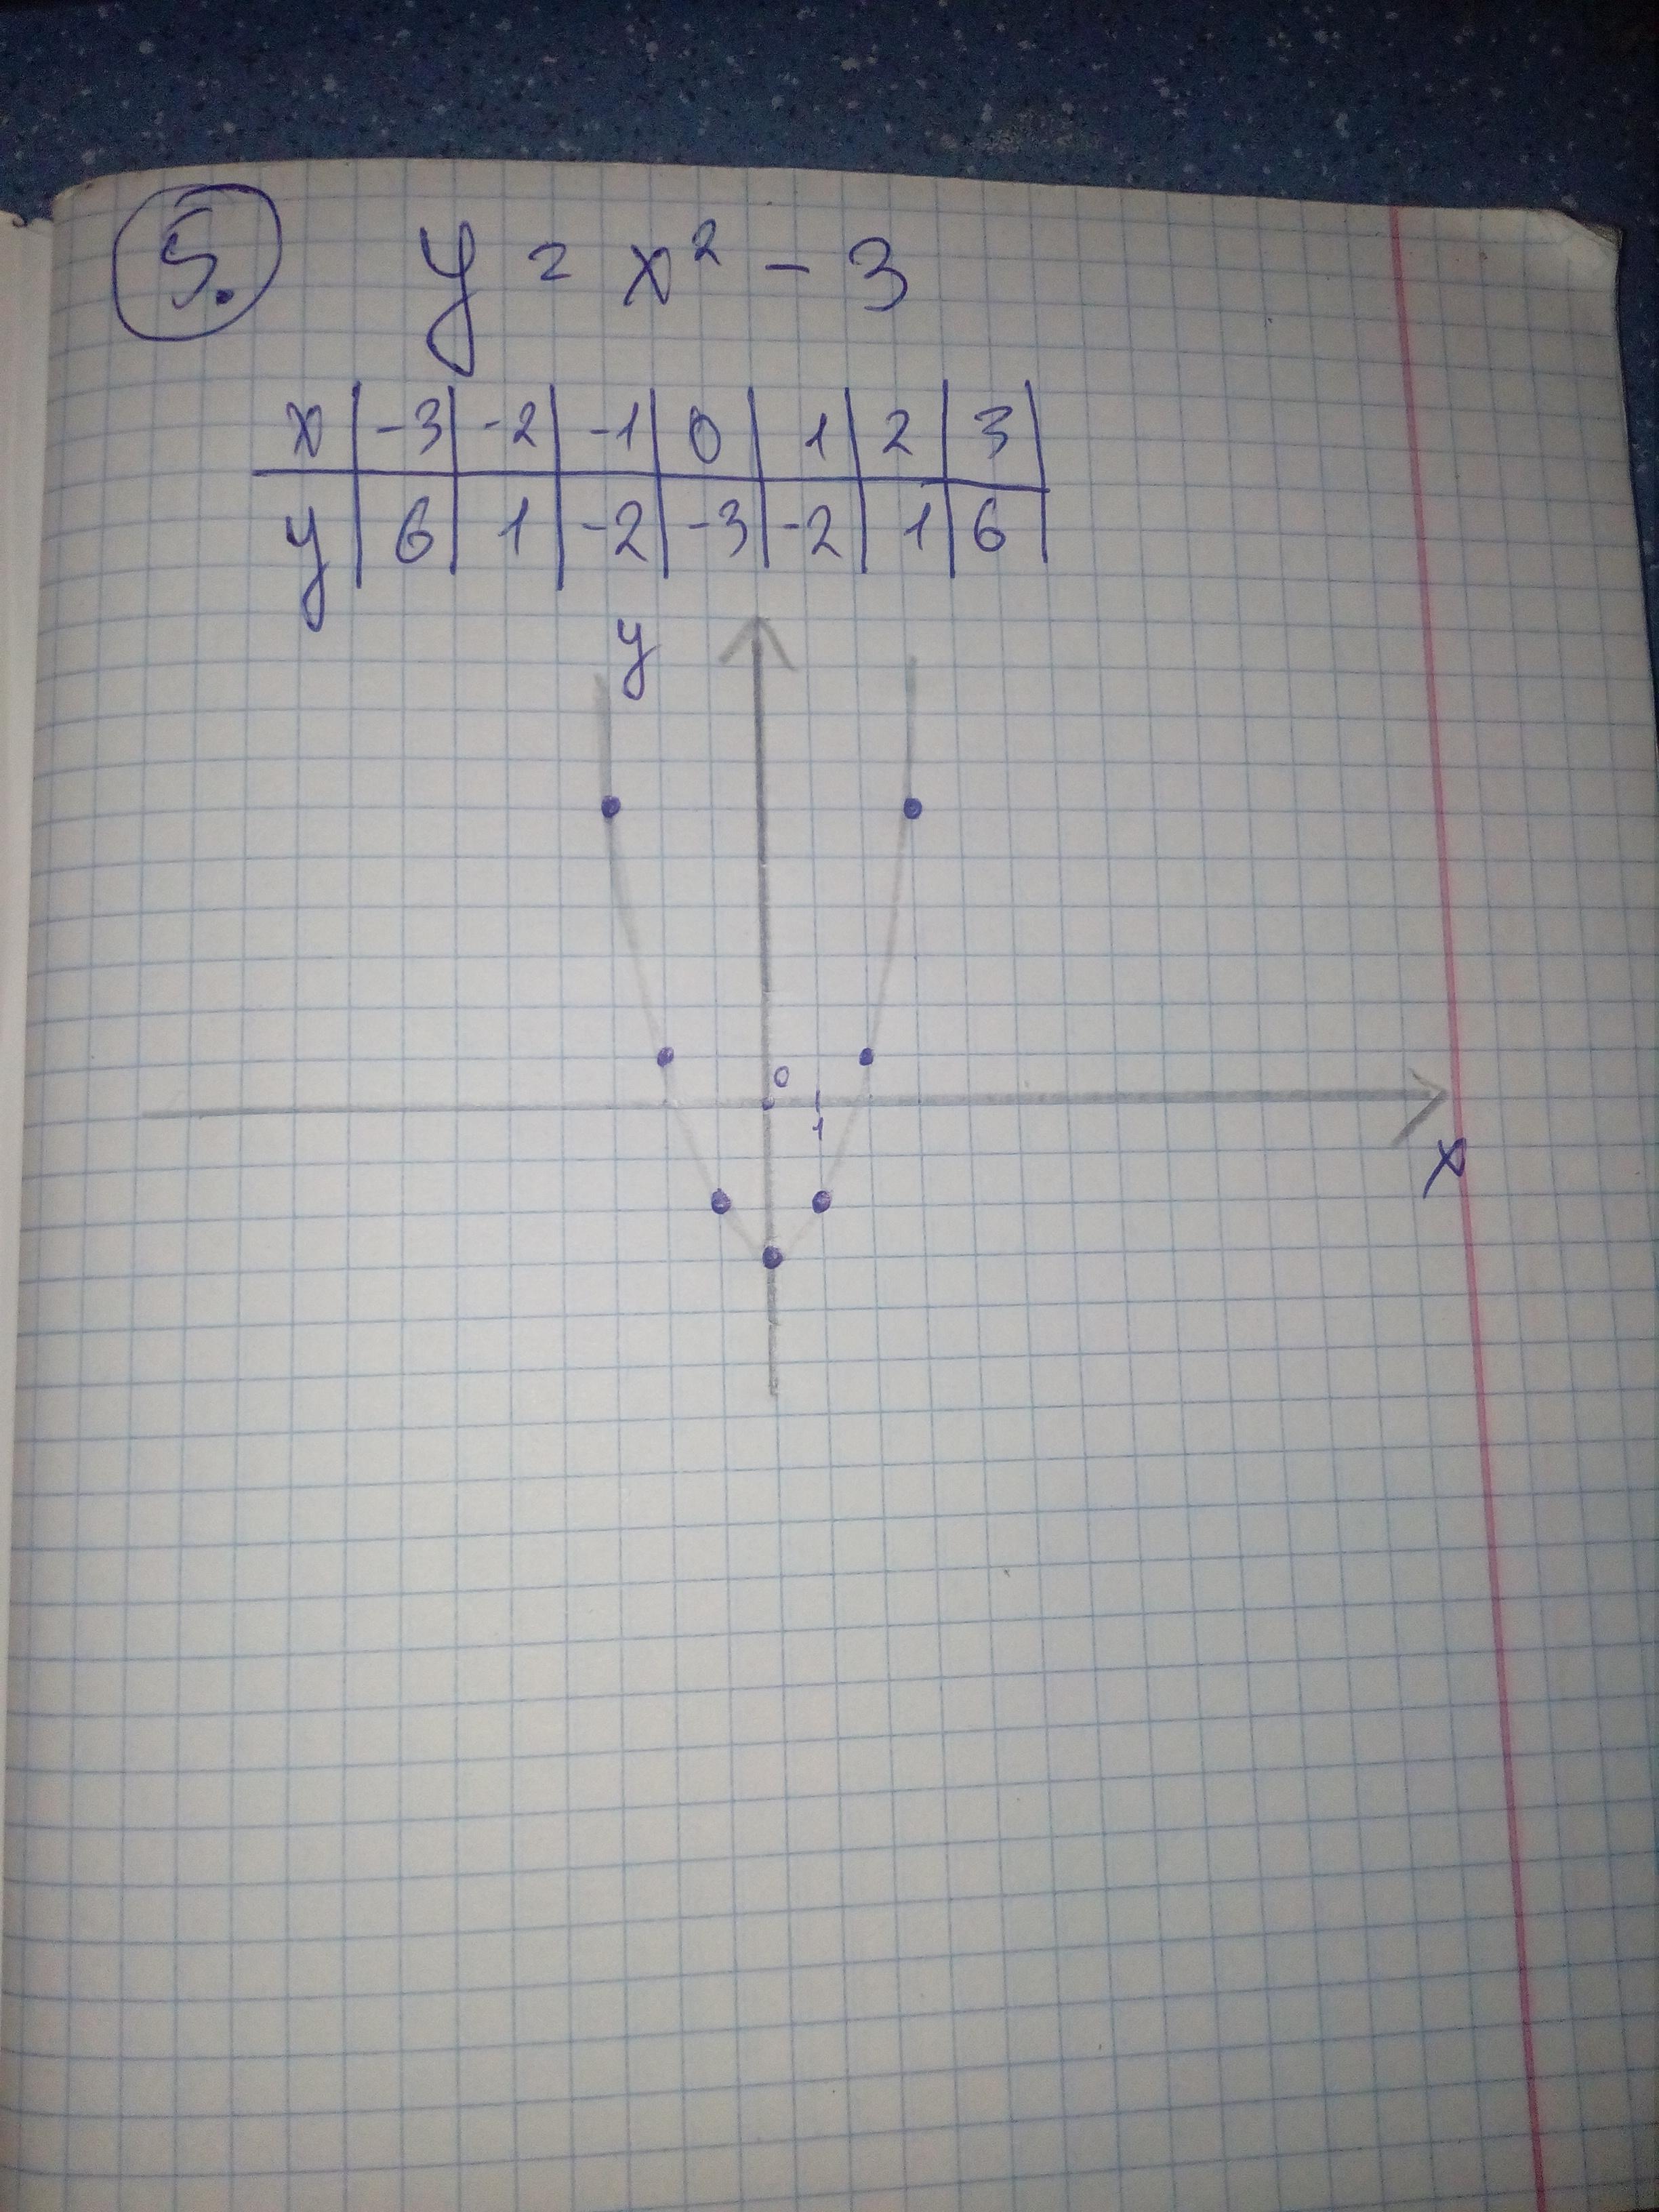 5. y = x² - 3
x | -3 | -2 | -1 | 0 | 1 | 2 | 3 |
y | 6 | 1 | -2 | -3 | -2 | 1 | 6 |
y
0
1
x